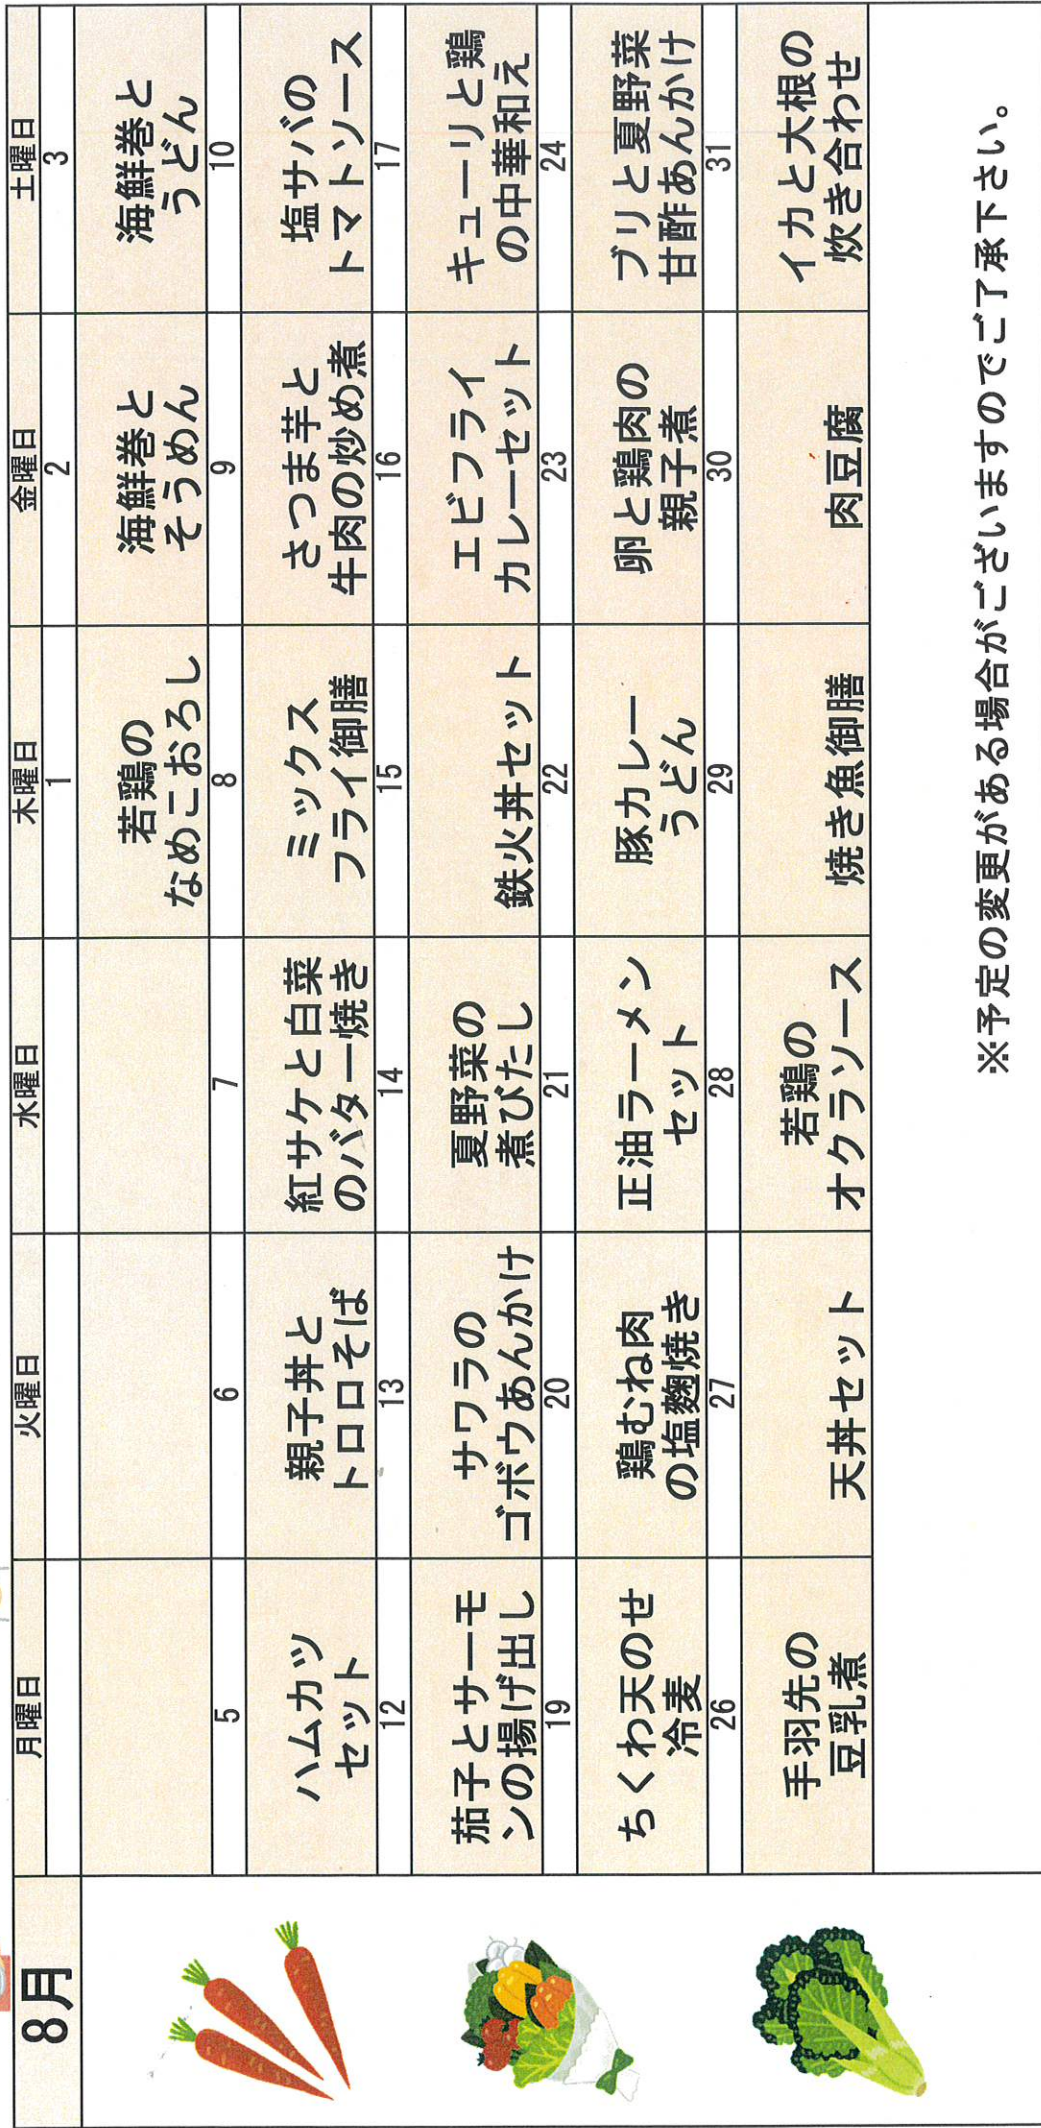 8月
月曜日 火曜日 水曜日 木曜日 金曜日 土曜日
1 2 3
若鶏の
なめこおろし
海鮮巻と
そうめん
海鮮巻と
うどん
5 6 7 8 9 10
ハムカツ
セット
親子丼と
トロロそば
紅サケと白菜
のバター焼き
ミックス
フライ御膳
さつま芋と
牛肉の炒め煮
塩サバの
トマトソース
12 13 14 15 16 17
茄子とサーモ
ンの揚げ出し
サワラの
ゴボウあんかけ
夏野菜の
煮びたし
鉄火丼セット
エビフライ
カレーセット
キューリと鶏
の中華和え
19 20 21 22 23 24
ちくわ天のせ
冷麦
鶏むね肉
の塩麹焼き
正油ラーメン
セット
豚カレー
うどん
卵と鶏肉の
親子煮
ブリと夏野菜
甘酢あんかけ
26 27 28 29 30 31
手羽先の
豆乳煮
天丼セット
若鶏の
オクラソース
焼き魚御膳
肉豆腐
イカと大根の
炊き合わせ
※予定の変更がある場合がございますのでご了承下さい。